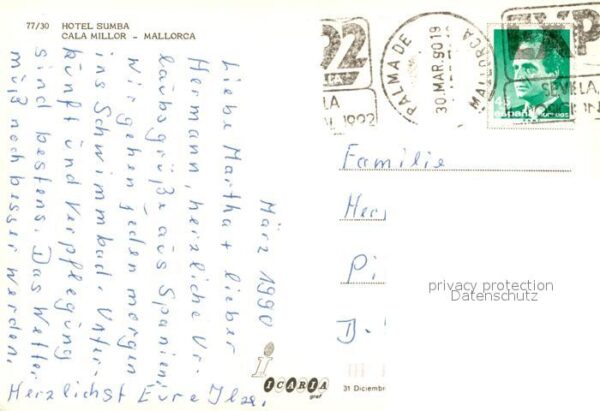 77/30 HOTEL SUMBA
CALA MILLOR - MALLORCA
März 1990
Liebe Martha + lieber
Hermann, herzliche Ur-
laubsgrüße aus Spanien.
Wir gehen jeden morgen
ins Schwimmbad. Unter-
künft und Verpflegung
sind bestens. Das Wetter
müß noch besser werden.
Herzlichst Eure Ilse.
PALMA DE MALLORCA
30.MAR.90 19
1992
45
españa
Familie
privacy protection
Datenschutz
ICARIA
graf
31 Diciembr